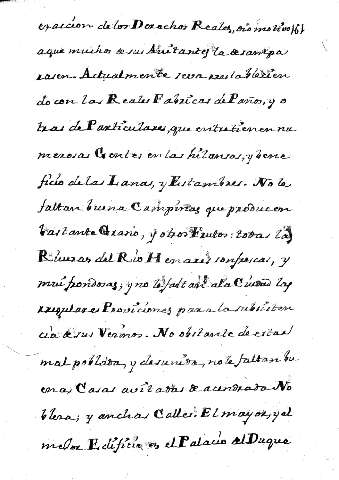 erascion de los Derechos Reales, dio motivo 161
a que muchos de sus Avitantes la desampa
rasen. Actualmente se va restablecien
do con las Reales Fabricas de Paños, y o
tras de Particulares, que entretienen nu
merosas Gentes en las hilansas, y bene
ficio de las Lanas, y Estambres. No le
faltan buena Campiñas que producen
bastante Grano, y otros Frutos: todas las
Riveras del Rio Henares son frescas, y
mui frondosas; y no le faltan a la Ciudad las
regulares Proviciones para la subsisten
cia de sus Vecinos. No obstante de estar
mal poblada, y desunida, no le faltan bu
enas Casas avitadas de acendrada No
bleza; y anchas Calles. El mayor, y el
mejor Edificio es el Palacio del Duque